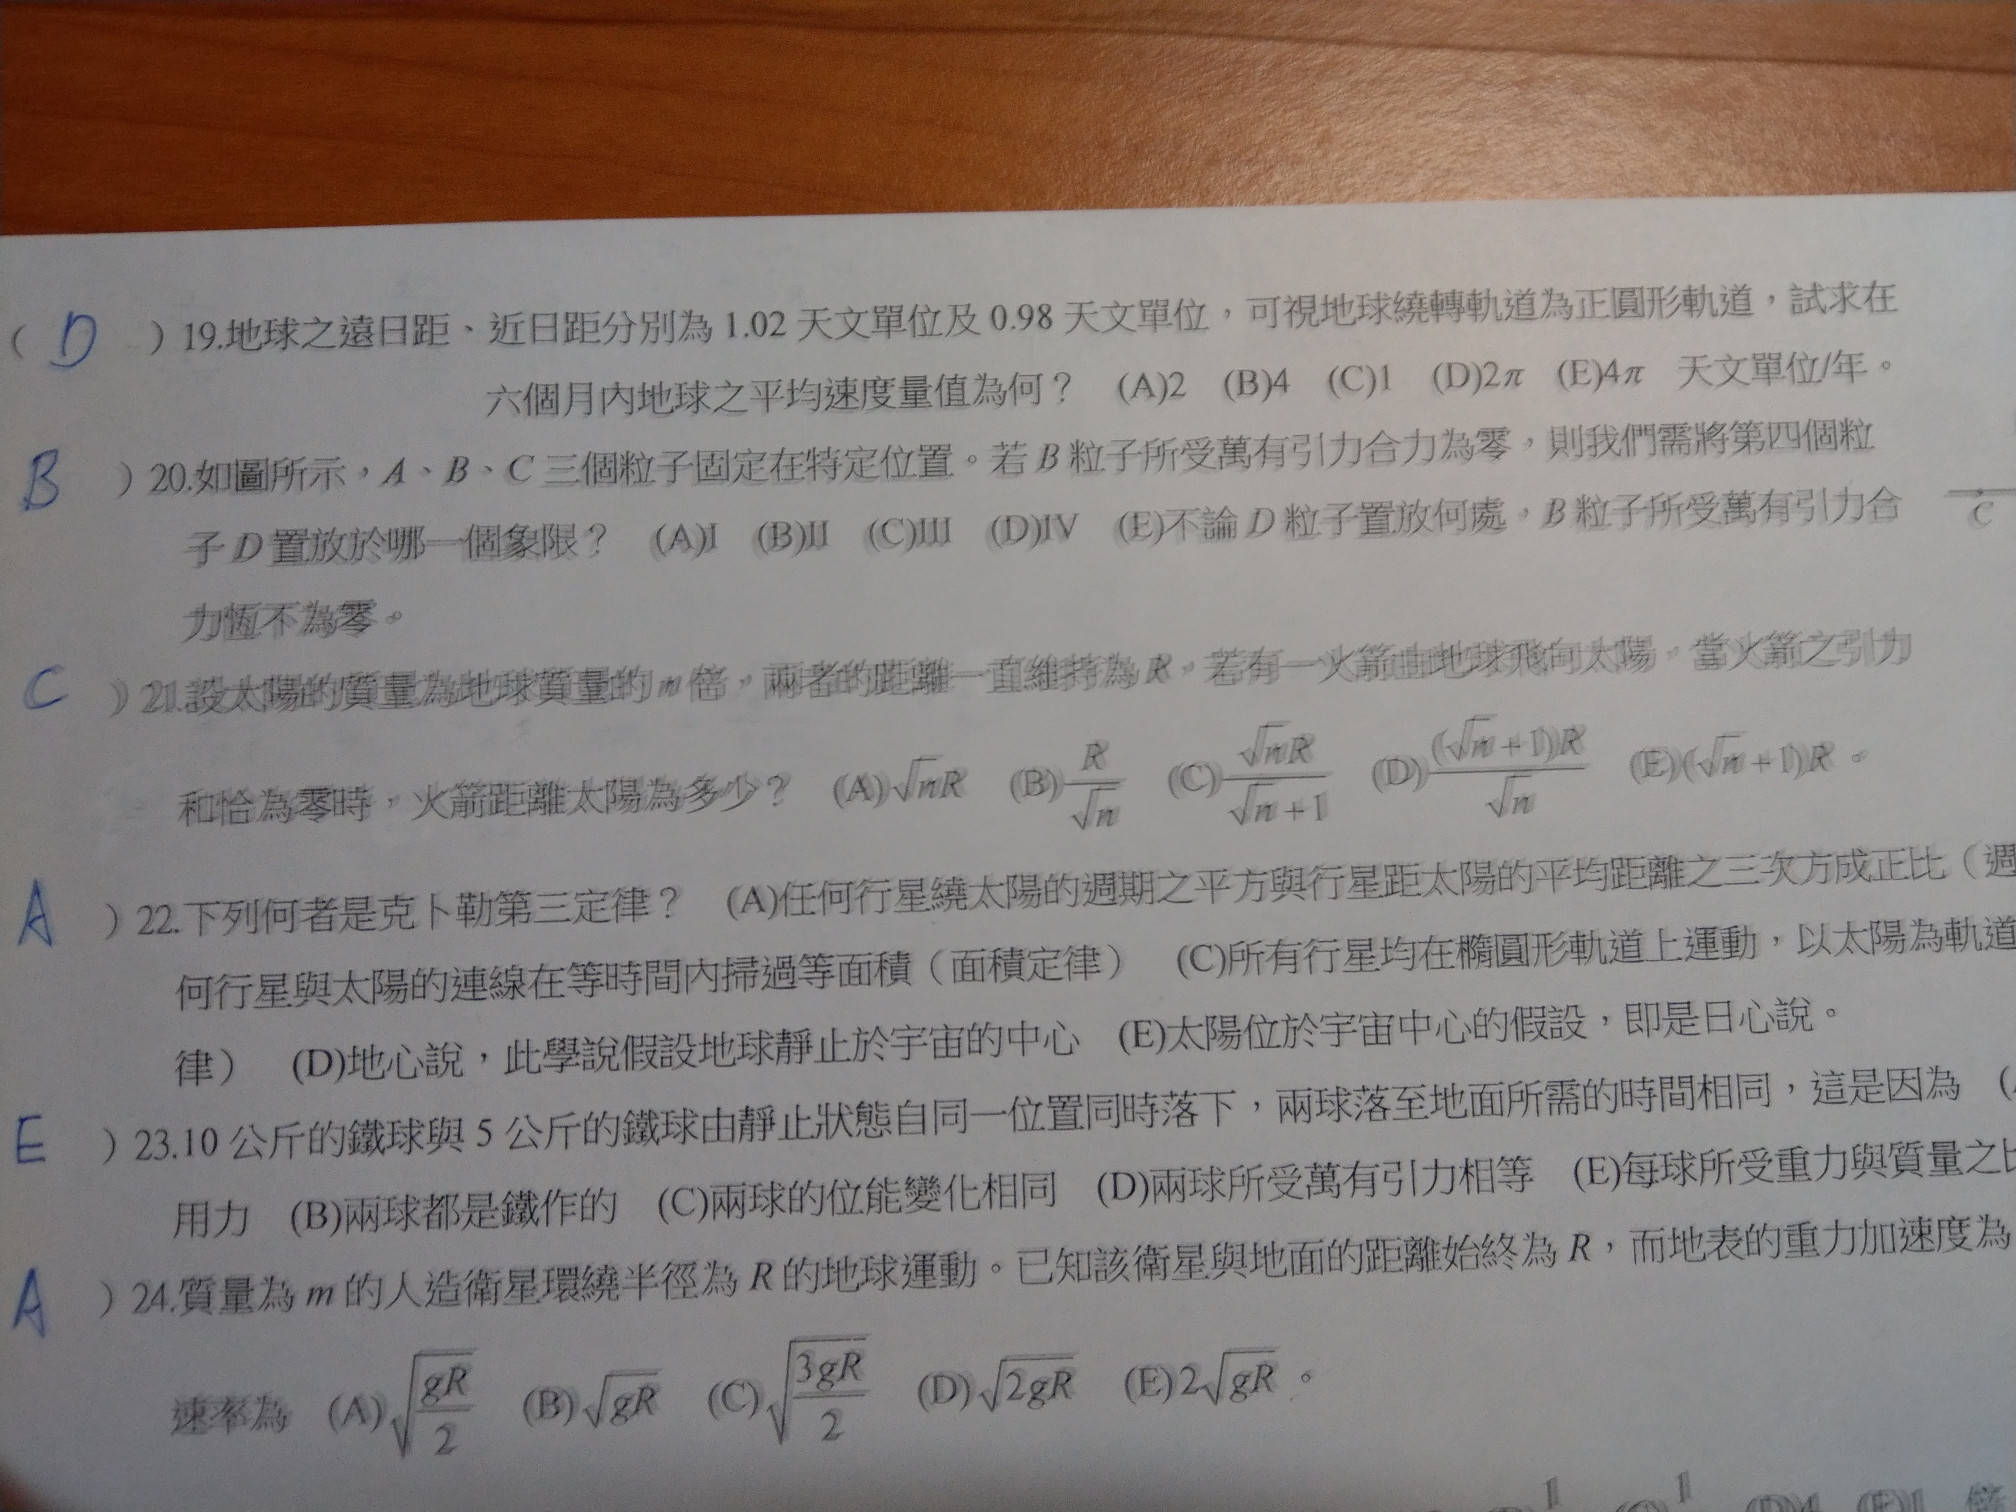 ( D ) 19.地球之遠日距、近日距分別為 1.02 天文單位及 0.98 天文單位，可視地球繞轉軌道為正圓形軌道，試求在
六個月內地球之平均速度量值為何？ (A)2 (B)4 (C)1 (D)2π (E)4π 天文單位/年。
B ) 20.如圖所示，A、B、C 三個粒子固定在特定位置。若 B 粒子所受萬有引力合力為零，則我們需將第四個粒
子 D 置放於哪一個象限？ (A)I (B)II (C)III (D)IV (E)不論 D 粒子置放何處，B 粒子所受萬有引力合
C
力恆不為零。
C ) 21.設太陽的質量為地球質量的 n 倍，兩者的距離一直維持為 R，若有一火箭由地球飛向太陽，當火箭之引力
和恰為零時，火箭距離太陽為多少？ (A)√nR (B)R/√n (C)√nR/(√n+1) (D)(√n+1)R/√n (E)(√n+1)R。
A ) 22.下列何者是克卜勒第三定律？ (A)任何行星繞太陽的週期之平方與行星距太陽的平均距離之三次方成正比（週
何行星與太陽的連線在等時間內掃過等面積（面積定律） (C)所有行星均在橢圓形軌道上運動，以太陽為軌道
律） (D)地心說，此學說假設地球靜止於宇宙的中心 (E)太陽位於宇宙中心的假設，即是日心說。
E ) 23.10 公斤的鐵球與 5 公斤的鐵球由靜止狀態自同一位置同時落下，兩球落至地面所需的時間相同，這是因為 (
用力 (B)兩球都是鐵作的 (C)兩球的位能變化相同 (D)兩球所受萬有引力相等 (E)每球所受重力與質量之
A ) 24.質量為 m 的人造衛星環繞半徑為 R 的地球運動。已知該衛星與地面的距離始終為 R，而地表的重力加速度為
速率為 (A)√(gR/2) (B)√gR (C)√(3gR/2) (D)√2gR (E)2√gR。